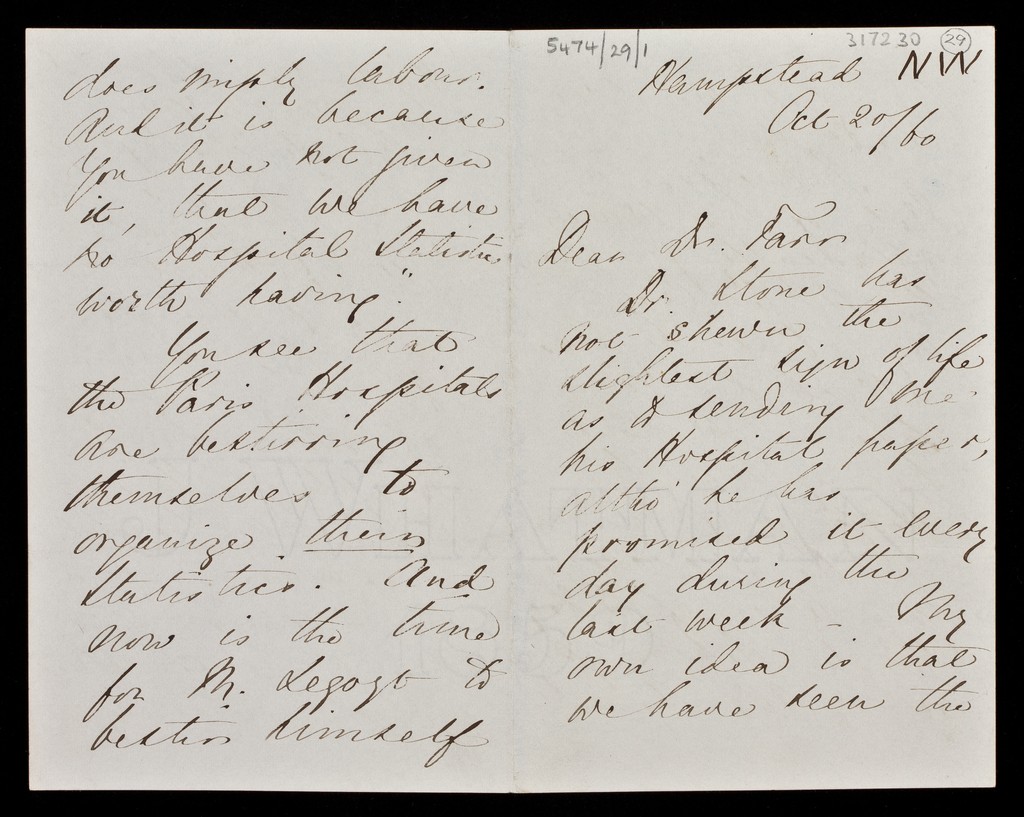 5474/29/1
317230
29
Hampstead NW
Oct 20/60
Dear Dr. Farr
Dr. Stone has
not shewn the
slightest sign of life
as to sending me
his Hospital paper,
altho' he has
promised it every
day during the
last week - My
own idea is that
we have seen the
does imply labour.
And it is because
you have not given
it, that we have
no Hospital Statistics
worth having."
You see that
the Paris Hospitals
are bestirring
themselves to
organize their
Statistics. And
now is the time
for M. Legoyt to
bestir himself